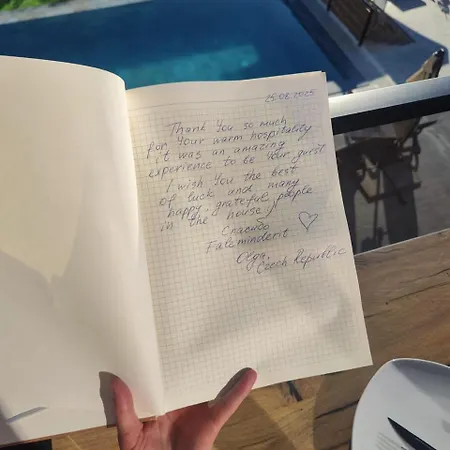 25.08.2025
Thank you so much
for your warm hospitality
it was an amazing
experience to be your guest
I wish you the best
of luck and many
happy, grateful people
in the house!
Спасибо
Faleminderit
Olga,
Czech Republic